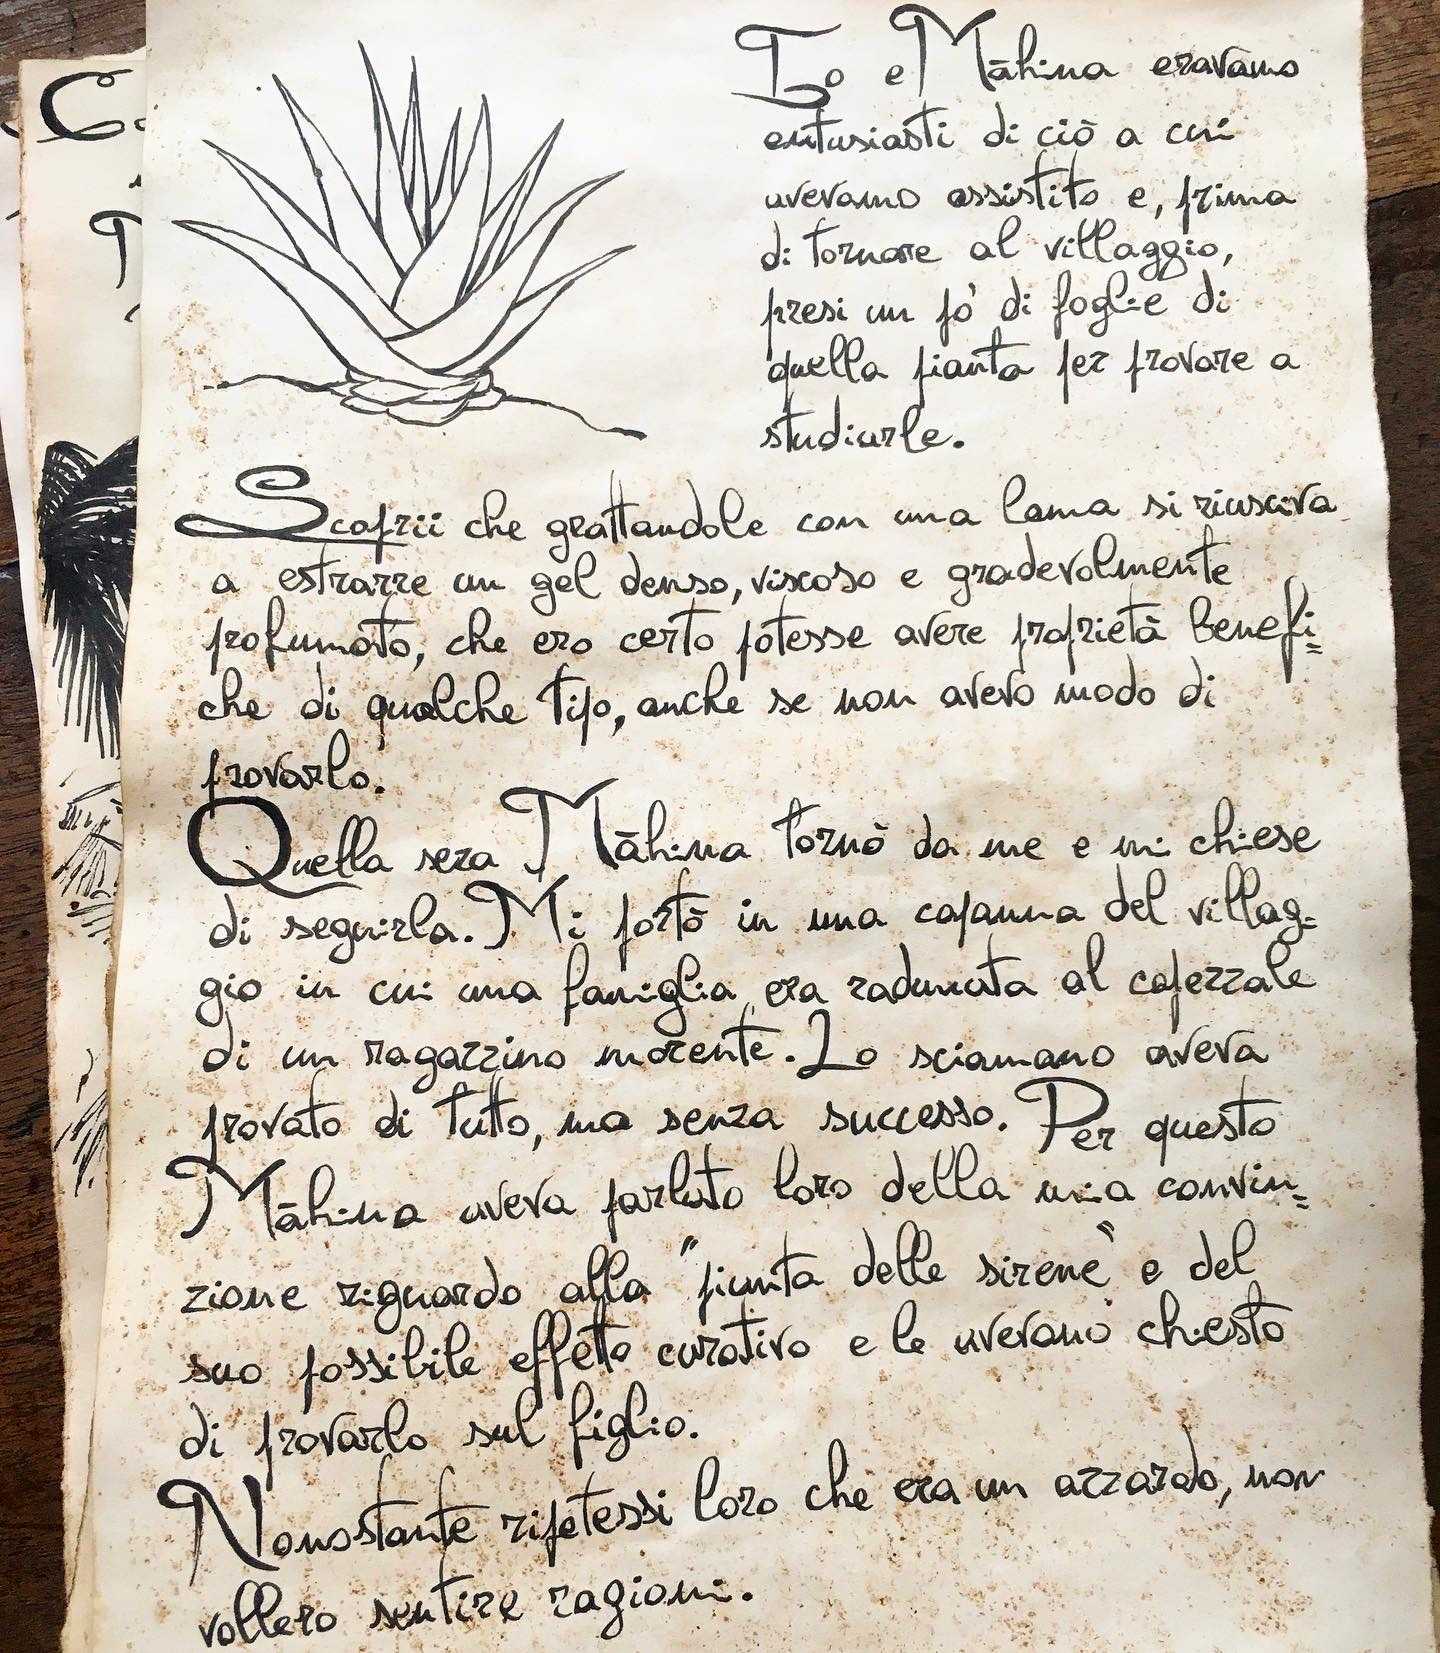 Io e Māhina eravamo
entusiasti di ciò a cui
avevamo assistito e, prima
di tornare al villaggio,
presi un pò di foglie di
quella pianta per provare a
studiarle.
Scoprii che grattandole con una lama si riusciva
a estrarre un gel denso, viscoso e gradevolmente
profumato, che ero certo potesse avere proprietà benefi=
che di qualche tipo, anche se non avevo modo di
provarlo.
Quella sera Māhina tornò da me e mi chiese
di seguirla. Mi portò in una capanna del villag=
gio in cui una famiglia era radunata al capezzale
di un ragazzino morente. Lo sciamano aveva
provato di tutto, ma senza successo. Per questo
Māhina aveva parlato loro della mia convin=
zione riguardo alla "pianta delle sirene" e del
suo possibile effetto curativo e le avevano chiesto
di provarlo sul figlio.
Nonostante ripetessi loro che era un azzardo, non
vollero sentire ragioni.